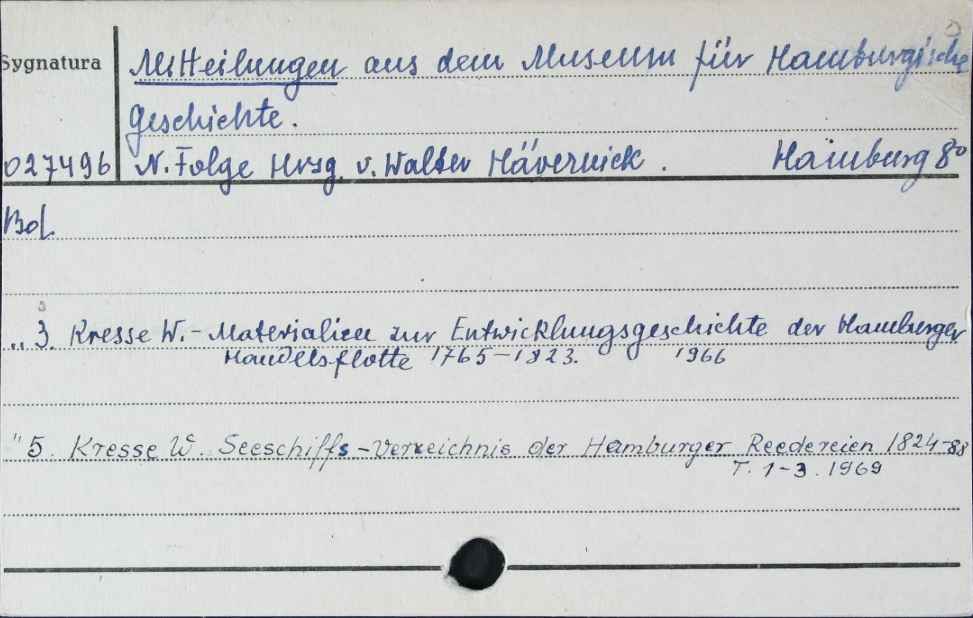 Sygnatura
Mitteilungen aus dem Museum für Hamburgische
Geschichte.
027496 N. Folge Hrsg. v. Walter Hävernick. Hamburg 8°
Bd.
„ 3. Kresse W. - Materialien zur Entwicklungsgeschichte der Hamburger
Handelsflotte 1765-1823. 1966
" 5. Kresse W. Seeschiffs-Verzeichnis der Hamburger Reedereien 1824-88
T. 1-3. 1969